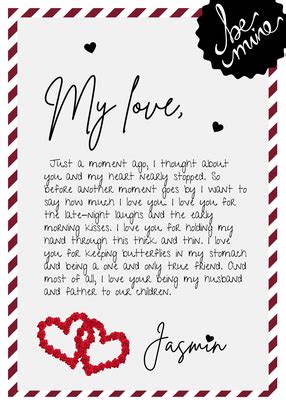 be
mine
My love,
Just a moment ago, I thought about
you and my heart nearly stopped. So
before another moment goes by I want to
say how much I love you. I love you for
the late-night laughs and the early
morning kisses. I love you for holding my
hand through this thick and thin. I love
you for keeping butterflies in my stomach
and being a one and only true friend. And
most of all, I love your being my husband
and father to our children.
Jasmin